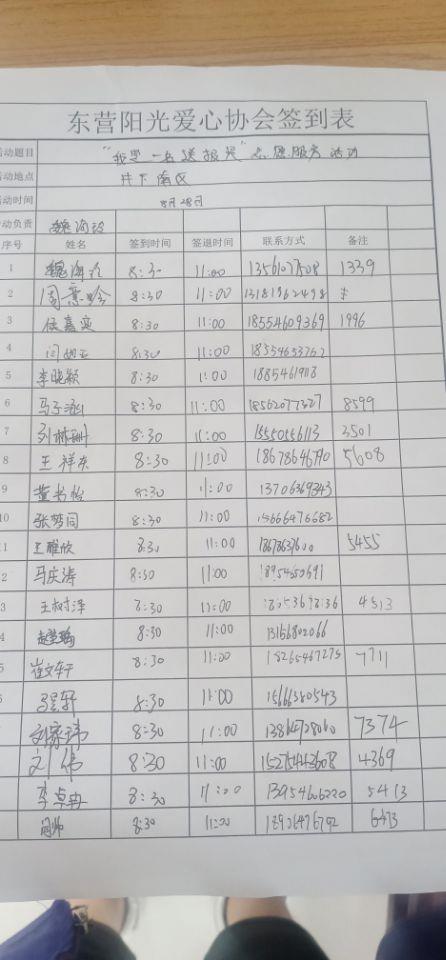 东营阳光爱心协会签到表
活动题目 "我是一名送报员"志愿服务活动
活动地点 井下南区
活动时间 8月28日
活动负责
序号 姓名 签到时间 签退时间 联系方式 备注
1 8:30 11:00 13561077508 1339
2 周 8:30 11:00 13181962498
3 侯嘉奕 8:30 11:00 18554609369 1996
4 8:30 11:00 18554653762
5 李晓颖 8:30 11:00
6 马子涵 8:30 11:00 18562077327 8599
7 刘林 8:30 11:00 15550556113 3501
8 王祥东 8:30 11:00 18678646790 5608
9 董书怡 8:30 11:00 13706369343
10 张梦同 8:30 11:00 15666476682
11 王雅欣 8:30 11:00 5455
2 马庆涛 8:30 11:00 18954650691
3 王树泽 8:30 11:00 4513
4 8:30 11:00 13156802066
5 崔文轩 8:30 11:00 18265467275 7711
6 轩 8:30 11:00 15666380543
8:30 11:00 13864728060 7374
刘伟 8:30 11:00 15275442608 4369
李卓冉 8:30 11:00 13954606220 5413
周帅 8:30 11:00 18926476792 6473